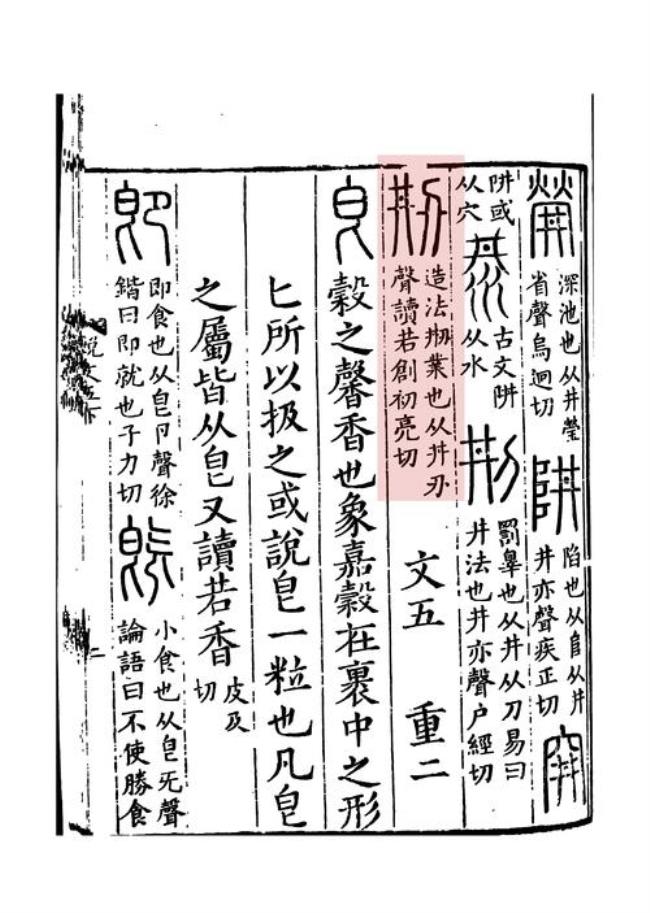 深池也从井瑩
省聲烏迥切
阱
陷也从𨸏从井
井亦聲疾正切
穽
阱或
从穴
汬
古文阱
从水
㓝
罰辠也从井从刀易曰
井法也井亦聲户經切
刱
造法刱業也从井刅
聲讀若創初亮切
文五 重二
皀 穀之馨香也象嘉穀在裹中之形
匕所以扱之或說皀一粒也凡皀
之屬皆从皀又讀若香
皮及
切
即
即食也从皀卪聲徐
鍇曰即就也子力切
既
小食也从皀旡聲
論語曰不使勝食